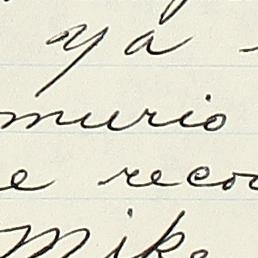 ya
murio
e reco
Mike